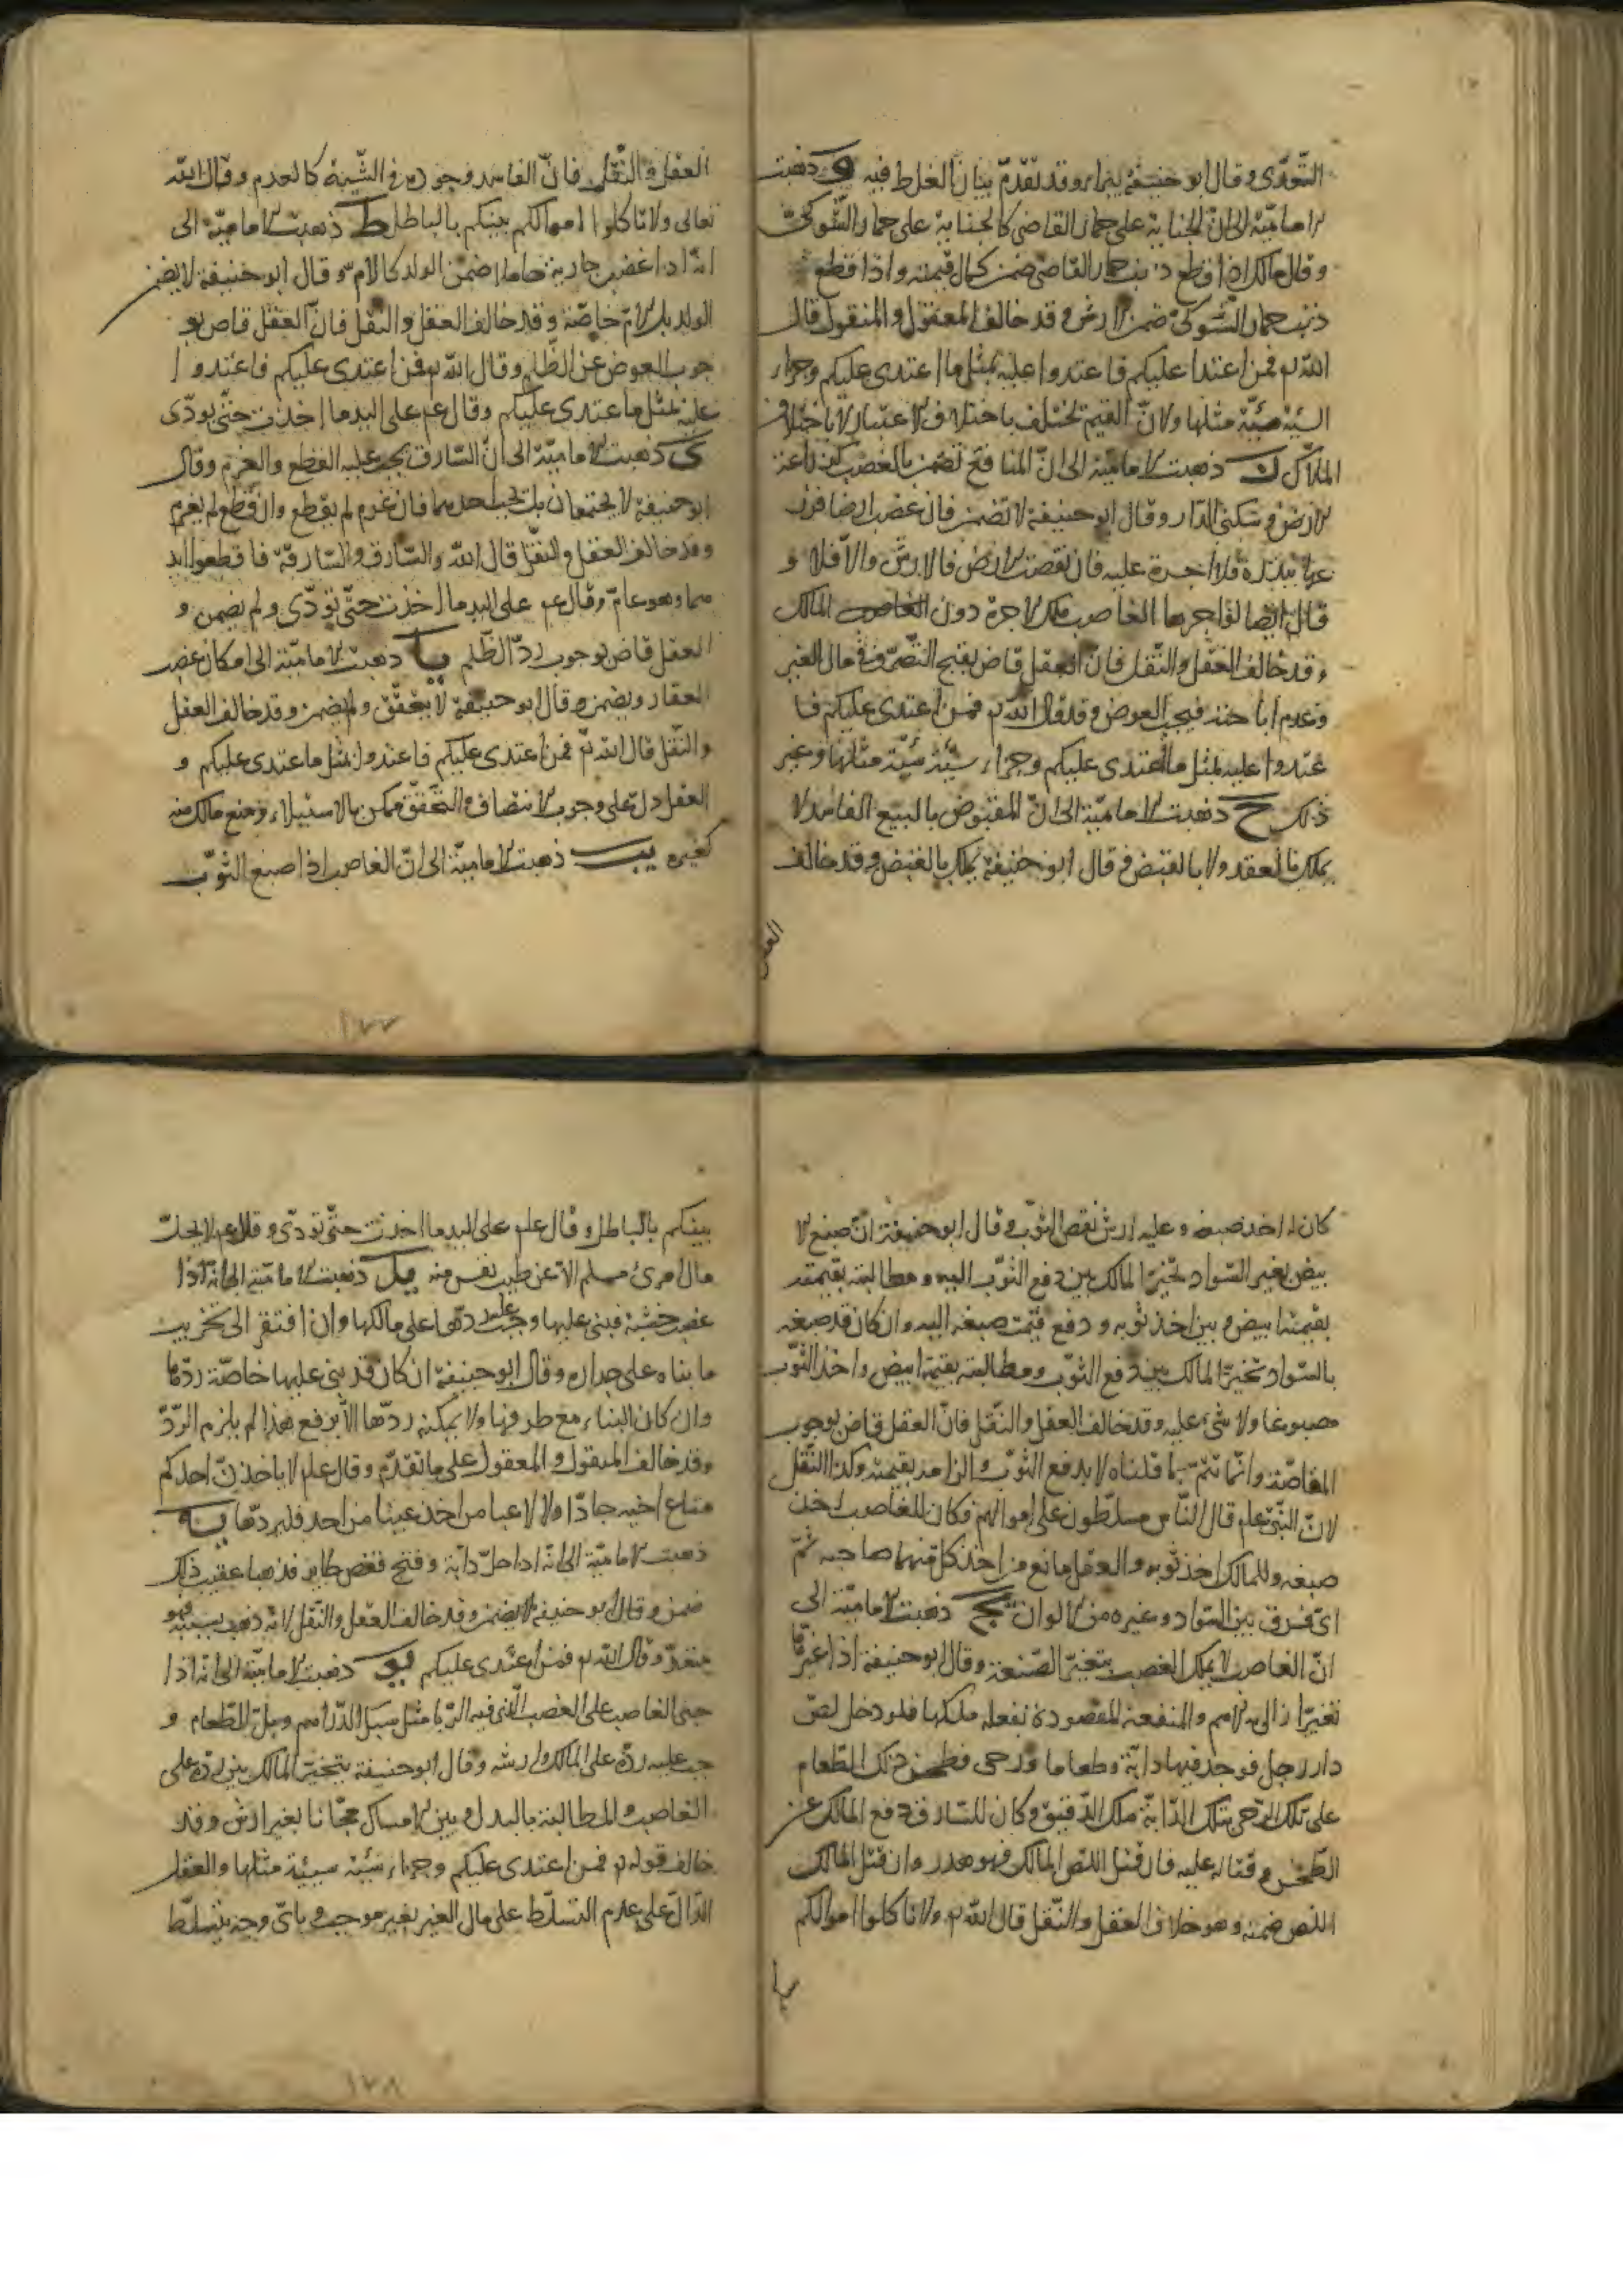 التعدى وقال ابو حنيفة يبراء وقد تقدم بيان الغلط فيه و ذهبت
الامامية الى ان الجناية على حمار القاضى كالجناية على حمار الشوكى
وقال مالك اذا قطع ذنب حمار القاضى ضمن كمال قيمته واذا قطع
ذنب حمار الشوكى ضمن الارش وقد خالف المعقول والمنقول قال
الله تع فمن اعتدا عليكم فاعتدوا عليه بمثل ما اعتدى عليكم وجزاء
السيئة سيئة مثلها ولان القيم تختلف باختلاف الاعتبار لا باختلاف
الملاك ز ذهبت الامامية الى ان المنافع تضمن بالغصب كزراعة
الارض وسكنى الدار وقال ابو حنيفة لا تضمن فان غصب ارضا فزر
عها ببذره فلا اجرة عليه فان نقصت الارض فالارش والا فلا و
قال ايضا لو اجرها الغاصب ملك الاجرة دون المالك
وقد خالف العقل والنقل فان العقل قاض بقبح التصرف فى مال الغير
وعدم اباحته فيجب العوض وقد قال الله تع فمن اعتدى عليكم فا
عتدوا عليه بمثل ما اعتدى عليكم وجزاء سيئة سيئة مثلها وغير
ذلك ح ذهبت الامامية الى ان المقبوض بالبيع الفاسد لا
يملك بالعقد ولا بالقبض وقال ابو حنيفة يملك بالقبض وقد خالف
العقل
العقل والنقل فان الفاسد وجوده فى الشبه كالعدم وقال الله
تعالى ولا تاكلوا اموالكم بينكم بالباطل ط ذهبت الامامية الى
انه اذا غصب جارية حاملا ضمن الولد كالام وقال ابو حنيفة لا يضمن
الولد بل الام خاصة وقد خالف العقل والنقل فان العقل قاض بو
جوب العوض عن الظلم وقال الله تع فمن اعتدى عليكم فاعتدوا
عليه بمثل ما اعتدى عليكم وقال عم على اليد ما اخذت حتى يودى
ى ذهبت الامامية الى ان السارق يجب عليه القطع والغرم وقال
ابو حنيفة لا يجتمعان بل يجب احدهما فان غرم لم يقطع وان قطع لم يغرم
وقد خالف العقل والنقل قال الله والسارق والسارقة فاقطعوا ايد
يهما وهو عام وقال عم على اليد ما اخذت حتى تودى ولم يضمن و
العقل قاض بوجوب رد الظلم يا ذهبت الامامية الى امكان غصب
العقار ويضمن وقال ابو حنيفة لا يتحقق ولم يضمن وقد خالف العقل
والنقل قال الله تع فمن اعتدى عليكم فاعتدوا بمثل ما اعتدى عليكم و
العقل دل على وجوب الانتصاف والتحقق ممكن بالاستيلاء ومنع مالكه منه
كغيره يب ذهبت الامامية الى ان الغاصب اذا صبغ الثوب
١٧٧
كان له اخذ صبغه وعليه ارش نقص الثوب وقال ابو حنيفة ان صبغ الا
بيض بغير السواد تخير المالك بين دفع الثوب اليه ومطالبته بقيمته
بقيمته ابيض وبين اخذ ثوبه ودفع قيمت صبغه اليه وان كان قد صبغه
بالسواد تخير المالك بين دفع الثوب ومطالبته بقيمة ابيض واخذ الثوب
مصبوغا ولا شىء عليه وقد خالف العقل والنقل فان العقل قاض بوجوب
المقاصة وانما تتم بما قلناه لا بدفع الثوب والزامه بقيمته وكذا النقل
لان النبى علم قال الناس مسلطون على اموالهم فكان للغاصب اخذ
صبغه وللمالك اخذ ثوبه والعقل مانع من اخذ كل منهما صاحبه ثم
اى فرق بين السواد وغيره من الالوان يج ذهبت الامامية الى
ان الغاصب لا يملك الغصب بتغير الصنعة وقال ابو حنيفة اذا غيرها
تغيرا ازال به الاسم والمنفعة المقصودة بفعله ملكها فلو دخل لص
دار رجل فوجد فيها دابة وطعاما ورحى فطحن ذلك الطعام
على تلك الرحى بتلك الدابة ملك الدقيق وكان للسارق دفع المالك عن
الطحن وقتاله عليه فان قتل اللص المالك فهو هدر وان قتل المالك
اللص ضمنه وهو خلاف العقل والنقل قال الله تع ولا تاكلوا اموالكم
بينكم بالباطل وقال علم على اليد ما اخذت حتى تودى وقال عم لا يحل
مال امرئ مسلم الا عن طيب نفس منه يد ذهبت الامامية الى انه اذا
غصب خشبة فبنى عليها وجب عليه ردها على مالكها وان افتقر الى تخريب
ما بناه على جداره وقال ابو حنيفة ان كان قد بنى عليها خاصة ردها
وان كان البناء مع طرفها ولا يمكنه ردها الا برفع هذا لم يلزم الرد
وقد خالف المنقول والمعقول على ما تقدم وقال علم لا ياخذن احدكم
متاع اخيه جادا ولا لاعبا من اخذ عصا من احد فليردها يه
ذهبت الامامية الى انه اذا حل دابة وفتح قفص طاير فذهبا عقيب ذلك
ضمن وقال ابو حنيفة لا يضمن وقد خالف العقل والنقل لانه ذهب بسببه فهو
متعد وقال الله تع فمن اعتدى عليكم يو ذهبت الامامية الى انه اذا
جنى الغاصب على الغصب الذى فيه الربا مثل سبك الدراهم وبل الطعام و
جب عليه رده على المالك وارشه وقال ابو حنيفة يتخير المالك بين رده على
الغاصب والمطالبة بالبدل وبين الامساك مجانا بغير ارش وقد
خالف قوله تع فمن اعتدى عليكم وجزاء سيئة سيئة مثلها والعقل
الدال على عدم التسلط على مال الغير بغير موجب وباى وجه يتسلط
١٧٨